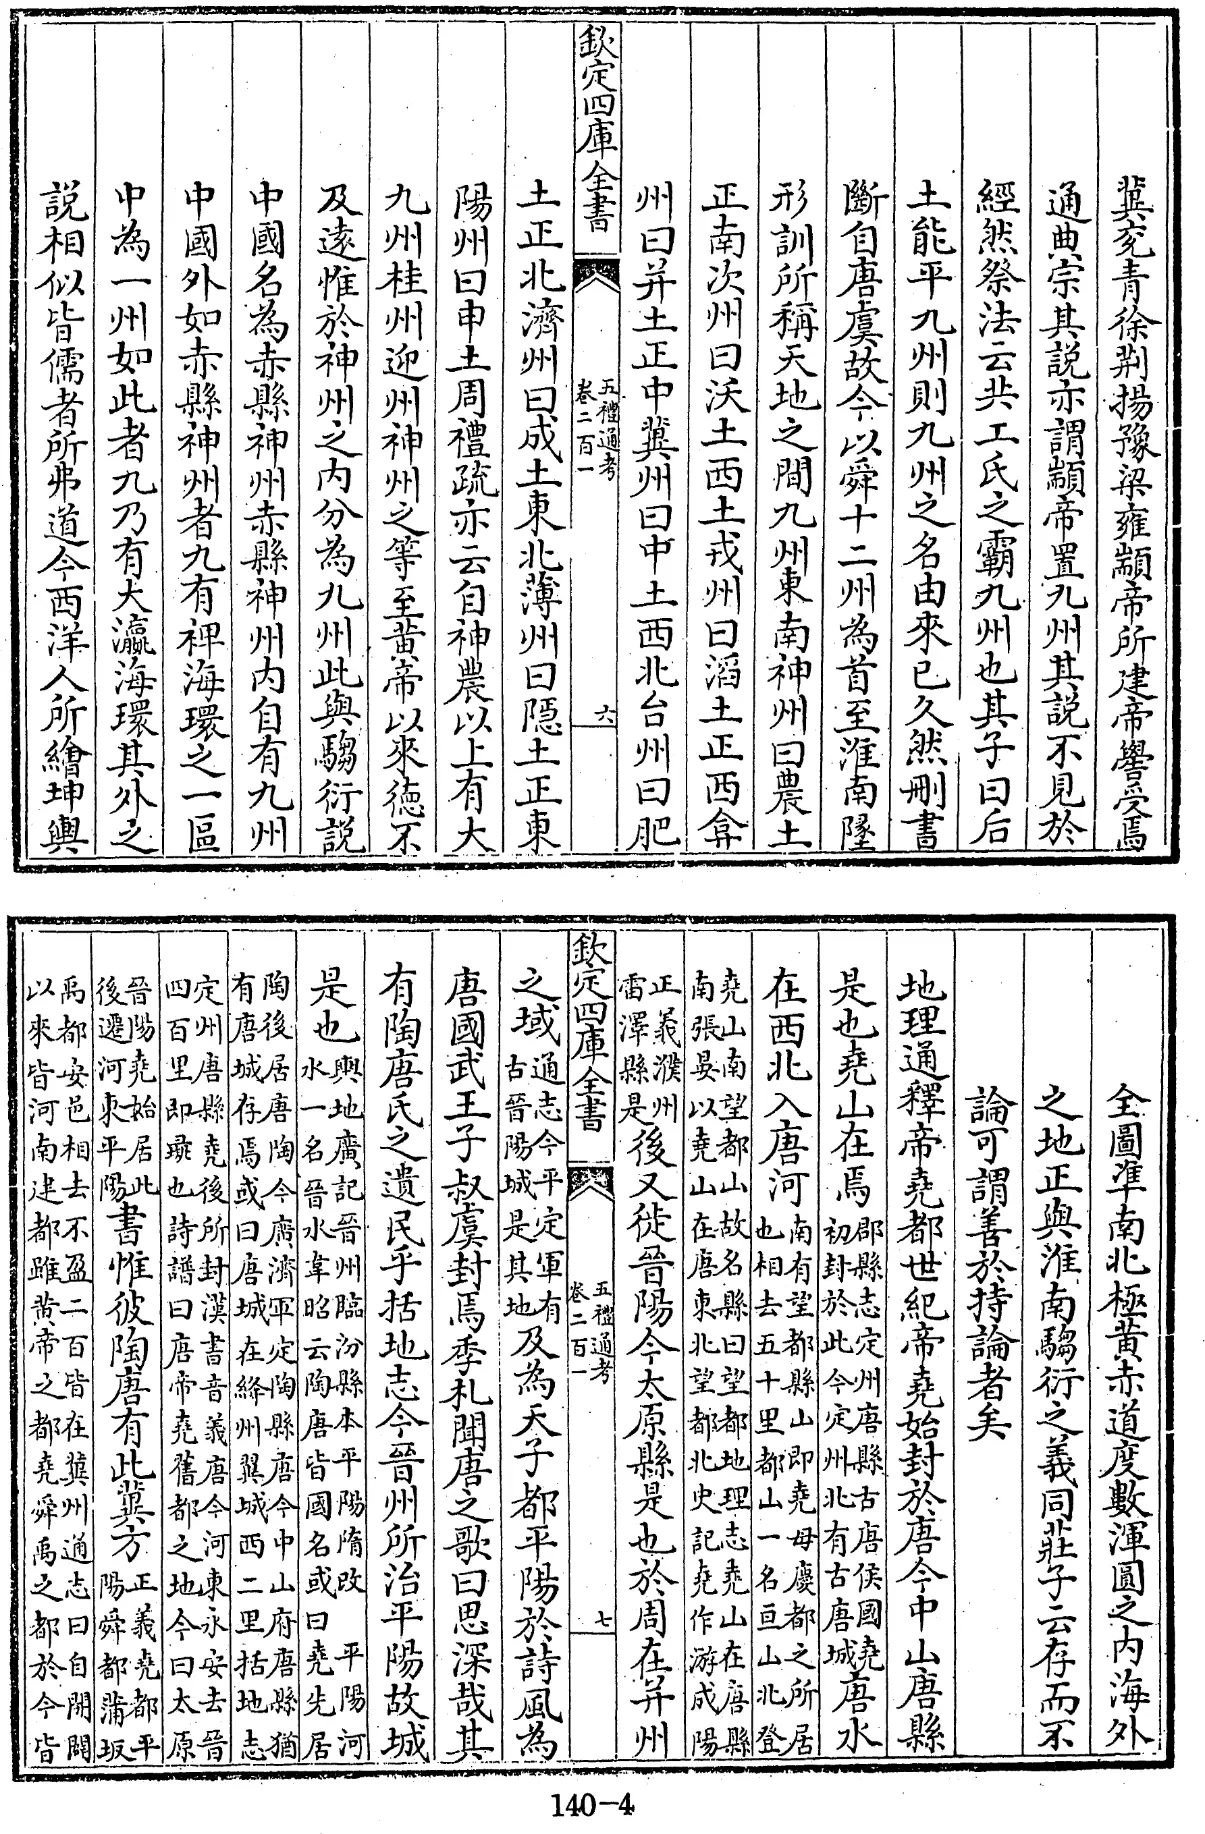 冀兖青徐荆揚豫梁雍顓帝所建帝嚳受焉
通典宗其説亦謂顓帝置九州其説不見於
經然祭法云共工氏之霸九州也其子曰后
土能平九州則九州之名由來已久然刪書
斷自唐虞故今以舜十二州為首至淮南墬
形訓所稱天地之間九州東南神州曰農土
正南次州曰沃土西土戎州曰滔土正西弇
州曰并土正中冀州曰中土西北台州曰肥
欽定四庫全書
五禮通考
卷二百一
六
土正北濟州曰成土東北薄州曰隱土正東
陽州曰申土周禮疏亦云自神農以上有大
九州桂州迎州神州之等至黃帝以來德不
及遠惟於神州之内分為九州此與騶衍説
中國名為赤縣神州赤縣神州内自有九州
中國外如赤縣神州者九有裨海環之一區
中為一州如此者九乃有大瀛海環其外之
説相似皆儒者所弗道今西洋人所繪坤輿
全圖準南北極黃赤道度數渾圓之内海外
之地正與淮南騶衍之義同莊子云存而不
論可謂善於持論者矣
地理通釋帝堯都世紀帝堯始封於唐今中山唐縣
是也堯山在焉郡縣志定州唐縣古唐侯國堯初封於此今定州北有古唐城唐水
在西北入唐河南有望都縣山即堯母慶都之所居也相去五十里都山一名亘山北登
堯山南望都山故名縣曰望都地理志堯山在唐縣南張晏以堯山在唐東北望都北史記堯作游成陽
正義濮州雷澤縣是後又徙晉陽今太原縣是也於周在并州
欽定四庫全書
五禮通考
卷二百一
七
之域通志今平定軍有古晉陽城是其地及為天子都平陽於詩風為
唐國武王子叔虞封焉季札聞唐之歌曰思深哉其
有陶唐氏之遺民乎括地志今晉州所治平陽故城
是也輿地廣記晉州臨汾縣本平陽隋改平陽河水一名晉水韋昭云陶唐皆國名或曰堯先居
陶後居唐陶今廣濟軍定陶縣唐今中山府唐縣猶有唐城存焉或曰唐城在絳州翼城西二里括地志
定州唐縣堯後所封漢書音義唐今河東永安去晉四百里即彘也詩譜曰唐帝堯舊都之地今曰太原
晉陽堯始居此後遷河東平陽書惟彼陶唐有此冀方正義堯都平陽舜都蒲坂
禹都安邑相去不盈二百皆在冀州通志曰自開闢以來皆河南建都雖黃帝之都堯舜禹之都於今皆
140-4